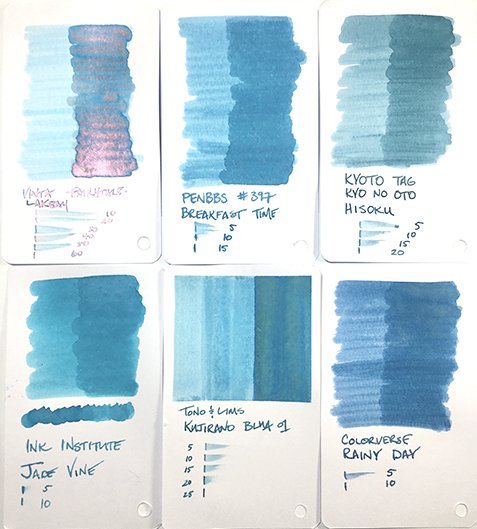 VINTA
LAKBAY
10
20
30
40
50
60
PENBBS #397
BREAKFAST TIME
5
10
15
KYOTO TAG
KYO NO OTO
HISOKU
5
10
15
20
INK INSTITUTE
JADE VINE
5
10
TONO & LIMS
BLHA 01
5
10
15
20
25
COLORVERSE
RAINY DAY
5
10